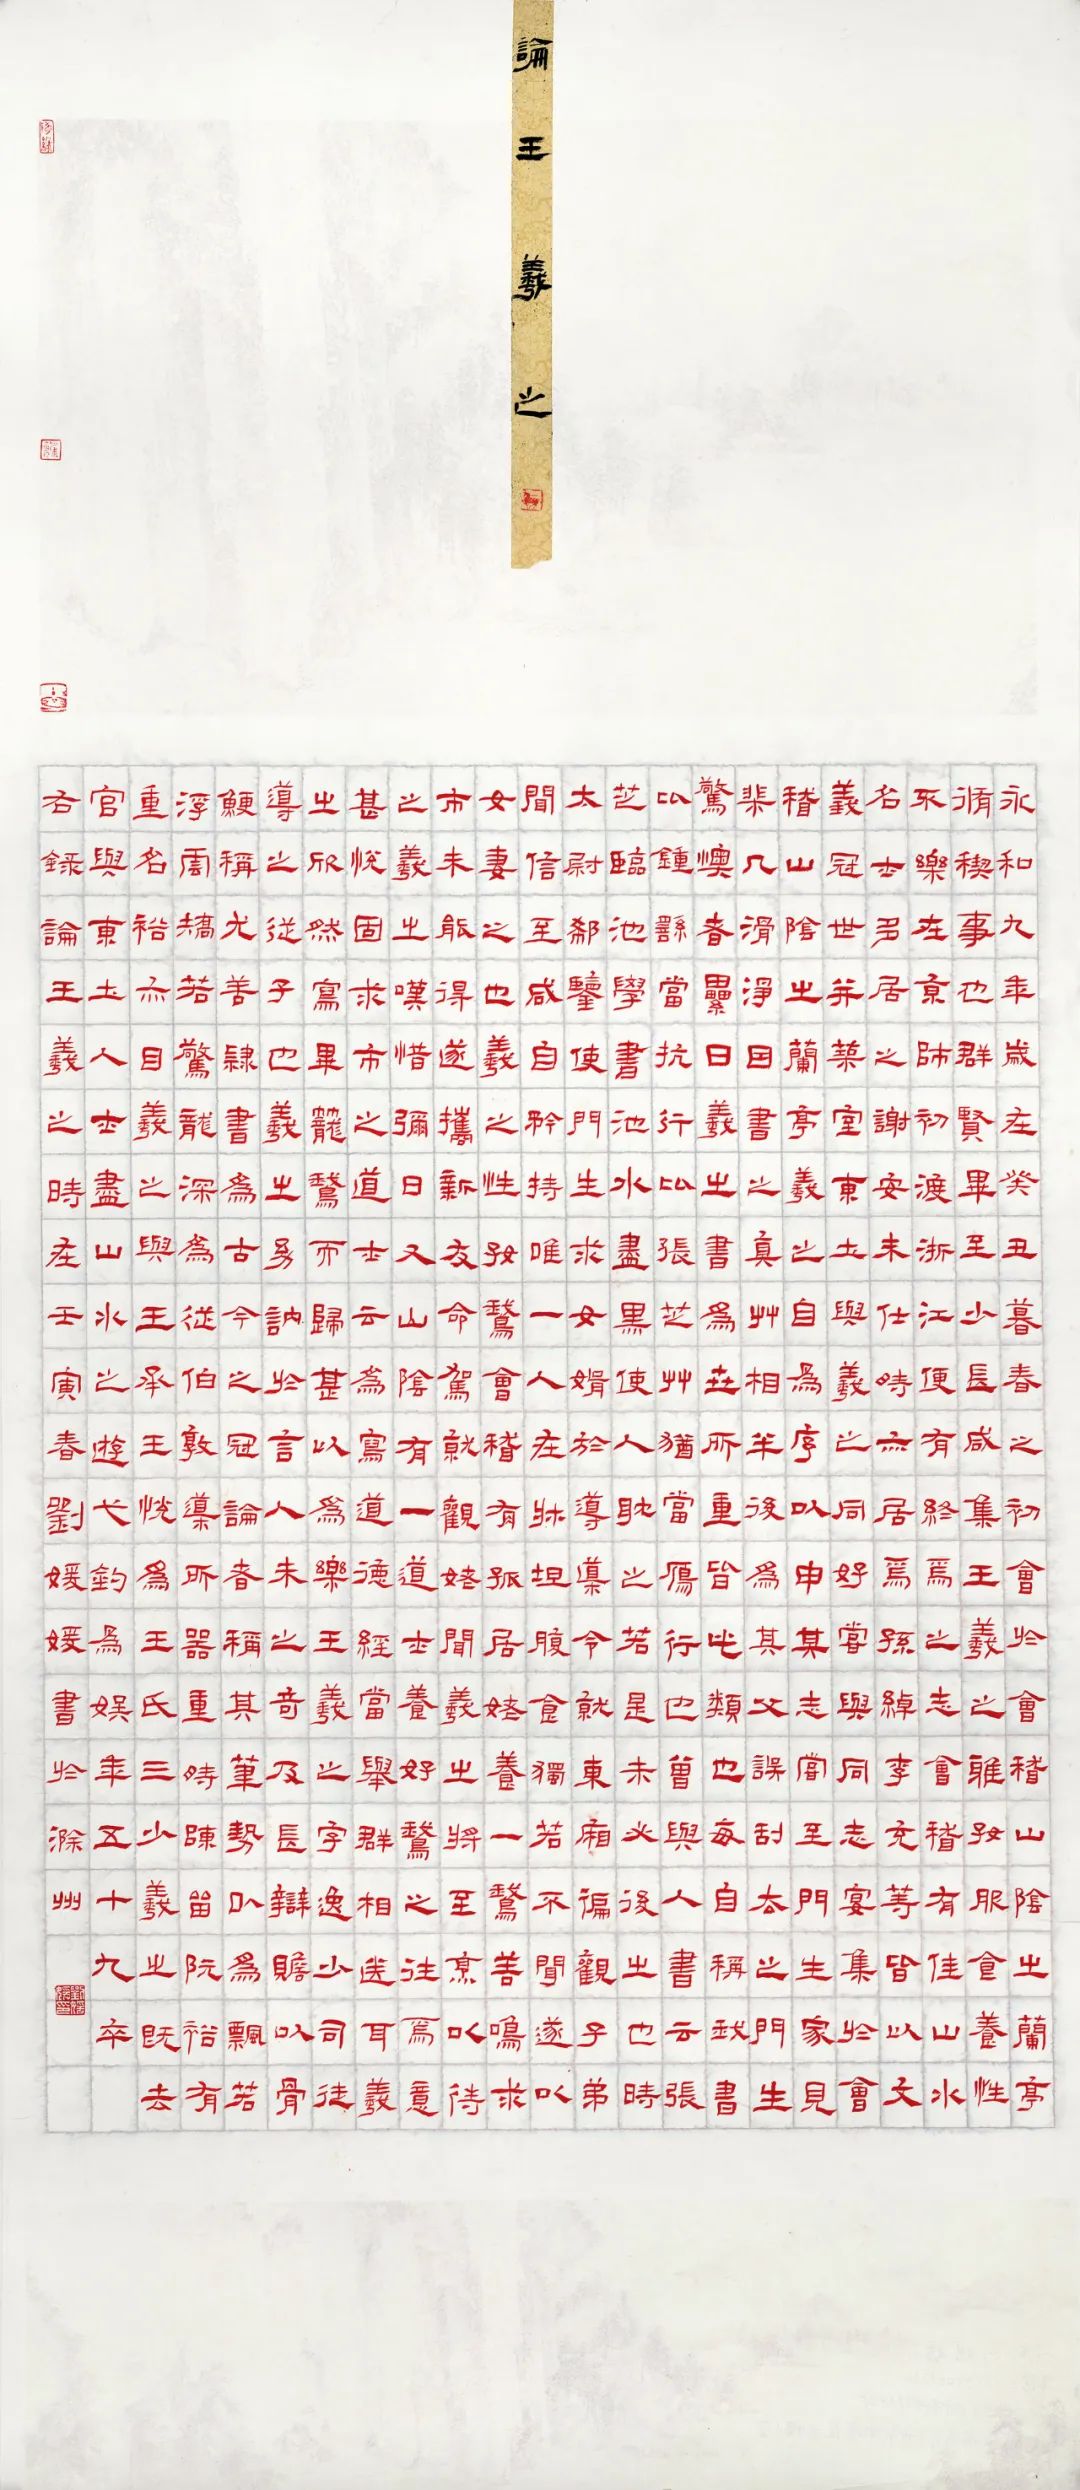 論王羲之
永和九年歲在癸丑暮春之初會於會稽山陰之蘭亭
脩禊事也群賢畢至少長咸集王羲之雅好服食養性
不樂在京師初渡浙江便有終焉之志會稽有佳山水
名士多居之謝安未仕時亦居焉孫綽李充等皆以文
義冠世并築室東土與羲之同好嘗與同志宴集於會
稽山陰之蘭亭羲之自為序以申其志嘗至門生家見
棐几滑淨因書之真艸相半後為其父誤刮去之門生
驚懊春累日羲之書為世所重皆此類也每自稱我書
以鍾繇當抗行比張芝艸猶當鴈行也曾與人書云張
芝臨池學書池水盡黑使人耽之若是未必後之也時
太尉郗鑒使門生求女婿於導導令就東廂徧觀子弟
聞信至咸自矜持唯一人在牀坦腹食獨若不聞遂以
女妻之也羲之性好鵞會稽有孤居姥養一鵞善鳴求
市未能得遂攜新友命駕就觀姥聞羲之將至烹以待
之羲之嘆惜彌日又山陰有一道士養好鵞之往焉意
甚悅固求市之道士云為寫道德經當舉群相送耳羲
之欣然寫畢籠鵞而歸甚以為樂王羲之字逸少司徒
導之從子也羲之幼訥於言人未之奇及長辯贍以骨
鯁稱尤善隸書為古今之冠論者稱其筆勢以為飄若
浮雲矯若驚龍深為從伯敦導所器重時陳留阮裕有
重名裕亦目羲之與王承王悅為王氏三少羲之既去
官與東土人士盡山水之遊弋釣為娛年五十九卒
右錄論王羲之時在壬寅春劉媛媛書於滁州